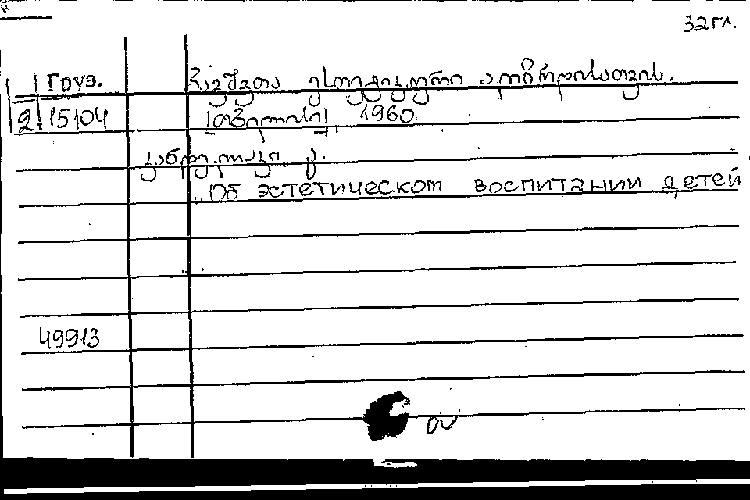 32гл.
Груз. ბავშვთა ესთეტიკური აღზრდისათვის.
2 15104 [თბილისი], 1960.
კანდელაკი კ.
Об эстетическом воспитании детей
49913